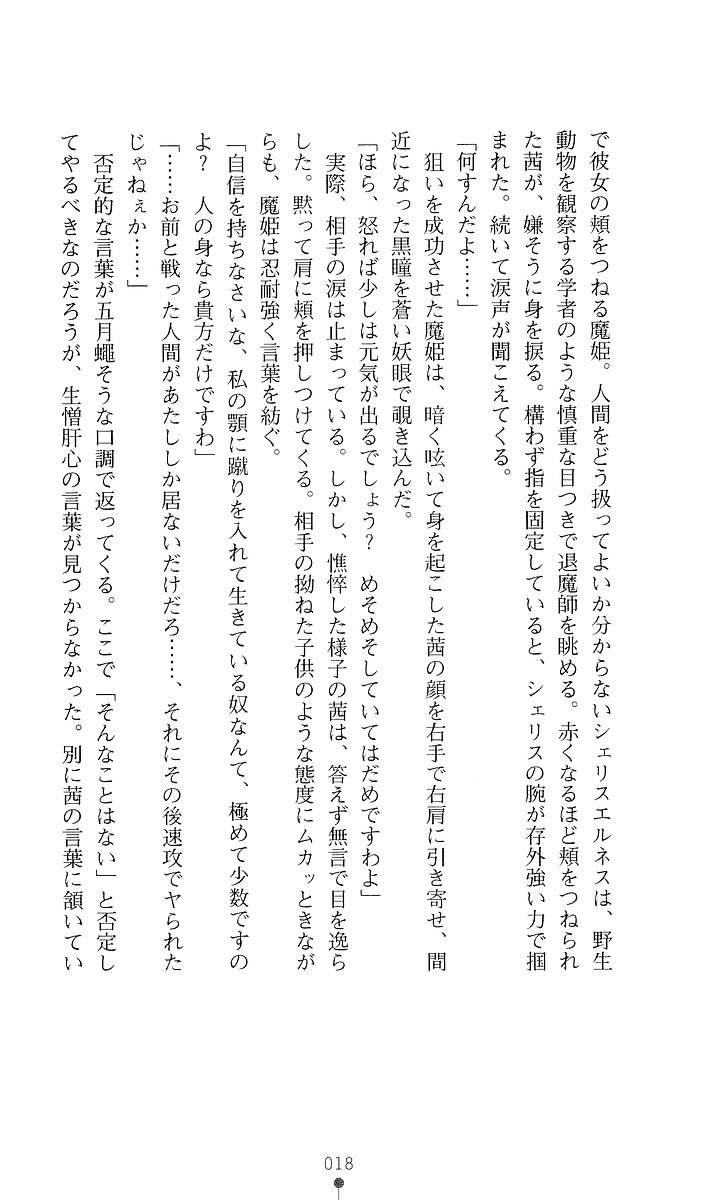 で彼女の頬をつねる魔姫。人間をどう扱ってよいか分からないシェリスエルネスは、野生
動物を観察する学者のような慎重な目つきで退魔師を眺める。赤くなるほど頬をつねられ
た茜が、嫌そうに身を捩る。構わず指を固定していると、シェリスの腕が存外強い力で掴
まれた。続いて涙声が聞こえてくる。
「何すんだよ……」
　狙いを成功させた魔姫は、暗く呟いて身を起こした茜の顔を右手で右肩に引き寄せ、間
近になった黒瞳を蒼い妖眼で覗き込んだ。
「ほら、怒れば少しは元気が出るでしょう？　めそめそしていてはだめですわよ」
　実際、相手の涙は止まっている。しかし、憔悴した様子の茜は、答えず無言で目を逸ら
した。黙って肩に頬を押しつけてくる。相手の拗ねた子供のような態度にムカッときなが
らも、魔姫は忍耐強く言葉を紡ぐ。
「自信を持ちなさいな、私の顎に蹴りを入れて生きている奴なんて、極めて少数ですの
よ？　人の身なら貴方だけですわ」
「……お前と戦った人間があたししか居ないだけだろ……、それにその後速攻でヤられた
じゃねぇか……」
　否定的な言葉が五月蠅そうな口調で返ってくる。ここで「そんなことはない」と否定し
てやるべきなのだろうが、生憎肝心の言葉が見つからなかった。別に茜の言葉に頷いてい
018